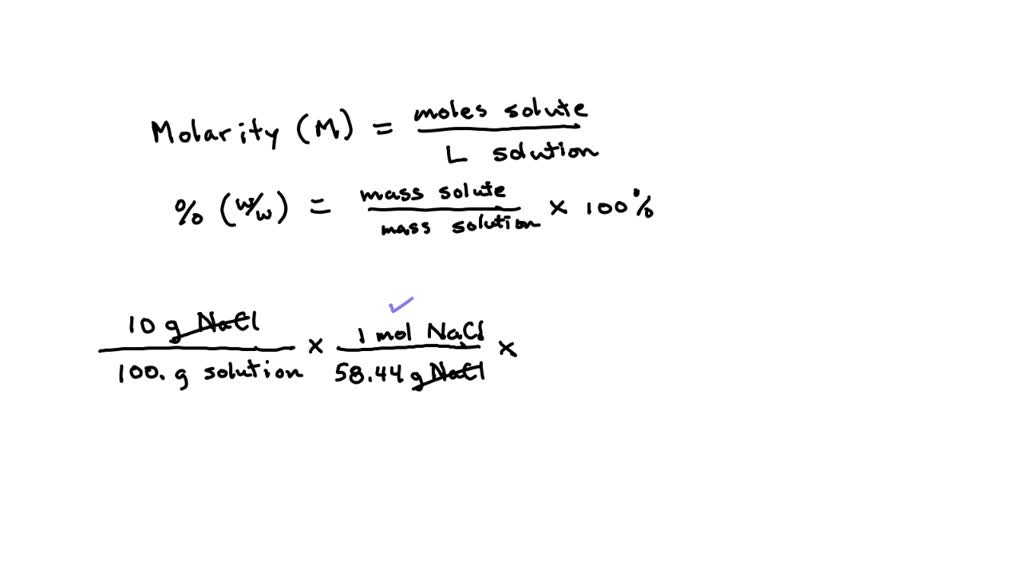 Molarity (M) = moles solute / L solution
% (w/w) = mass solute / mass solution x 100%
10 g NaCl / 100. g solution x 1 mol NaCl / 58.44 g NaCl x